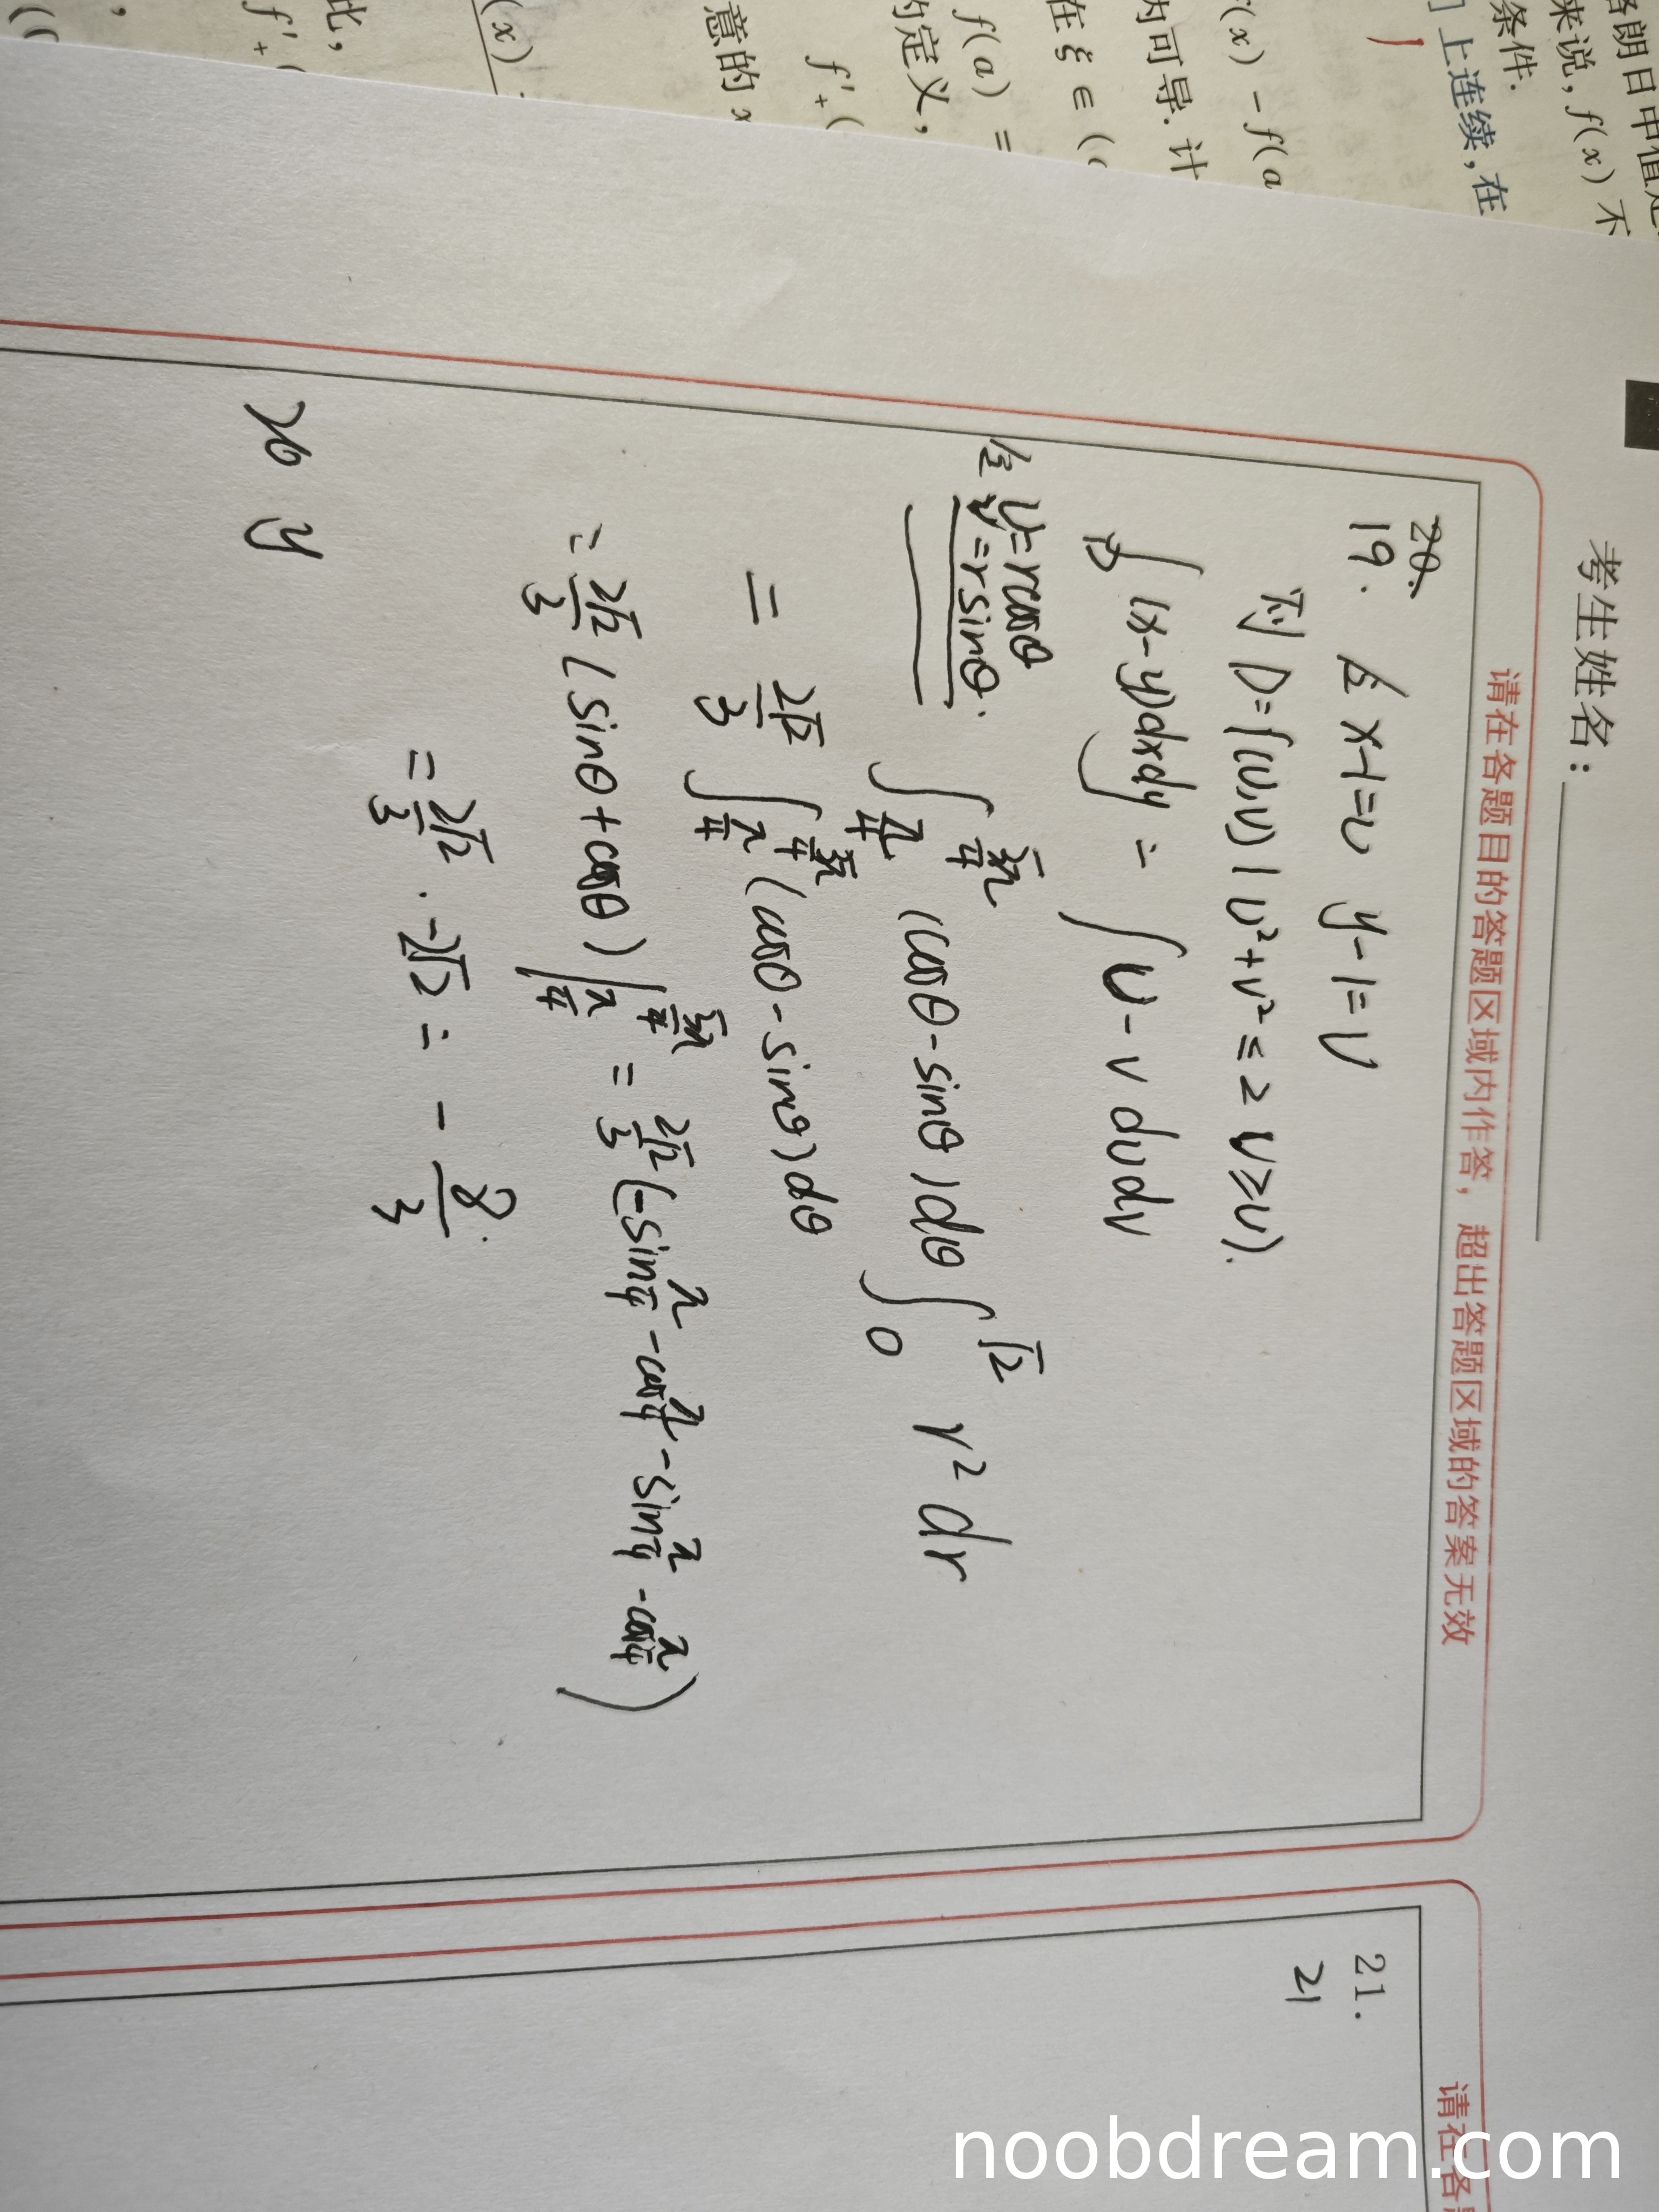 考生姓名：
请在各题目的答题区域内作答，超出答题区域的答案无效
20.
19. 令 x-1=u y-1=v
则 D={(u,v) | u²+v²≤2 v≥u}.
∫_D (x-y)dxdy = ∫ u-v dudv
令 u=rcosθ v=rsinθ. ∫_{π/4}^{5π/4} (cosθ-sinθ)dθ ∫_0^{√2} r² dr
= 2√2/3 ∫_{π/4}^{5π/4} (cosθ-sinθ)dθ
= 2√2/3 (sinθ+cosθ)|_{π/4}^{5π/4} = 2√2/3 (-sin π/4 - cos π/4 - sin π/4 - cos π/4)
= 2√2/3 · -2√2 = - 8/3.
20 y
21.
21
请在各
格朗日中值定
来说, f(x) 不
条件.
] 上连续, 在
(x) - f(a
为可导. 计
在 ξ ∈ (
f(a) =
的定义,
f'₊(
意的 x
(x)
此,
f'₊(
noobdream.com